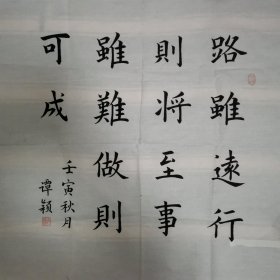 路雖遠行
則将至事
雖難做則
可成
壬寅秋月
譚穎